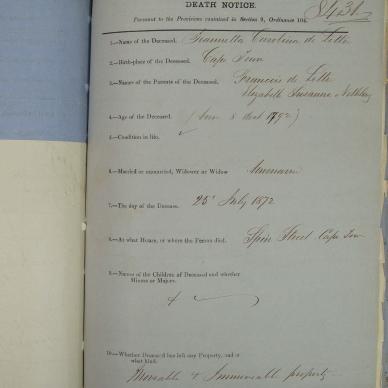 DEATH NOTICE.
Pursuant to the Provisions contained in Section 9, Ordinance 104.
1.—Name of the Deceased. Carolina de Lille
2.—Birth-place of the Deceased. Cape Town
3.—Names of the Parents of the Deceased. Francois de Lille
Elizabeth Susanna
4.—Age of the Deceased. (born 8 1792)
5.—Condition in life.
6.—Married or unmarried, Widower or Widow
7.—The day of the Decease. 25 July 1872
8.—At what House, or where the Person died. Spin Street Cape Town
9.—Names of the Children of Deceased and whether
Minors or Majors.
10.—Whether Deceased has left any Property, and of
what kind.
Moveable & Immoveable property